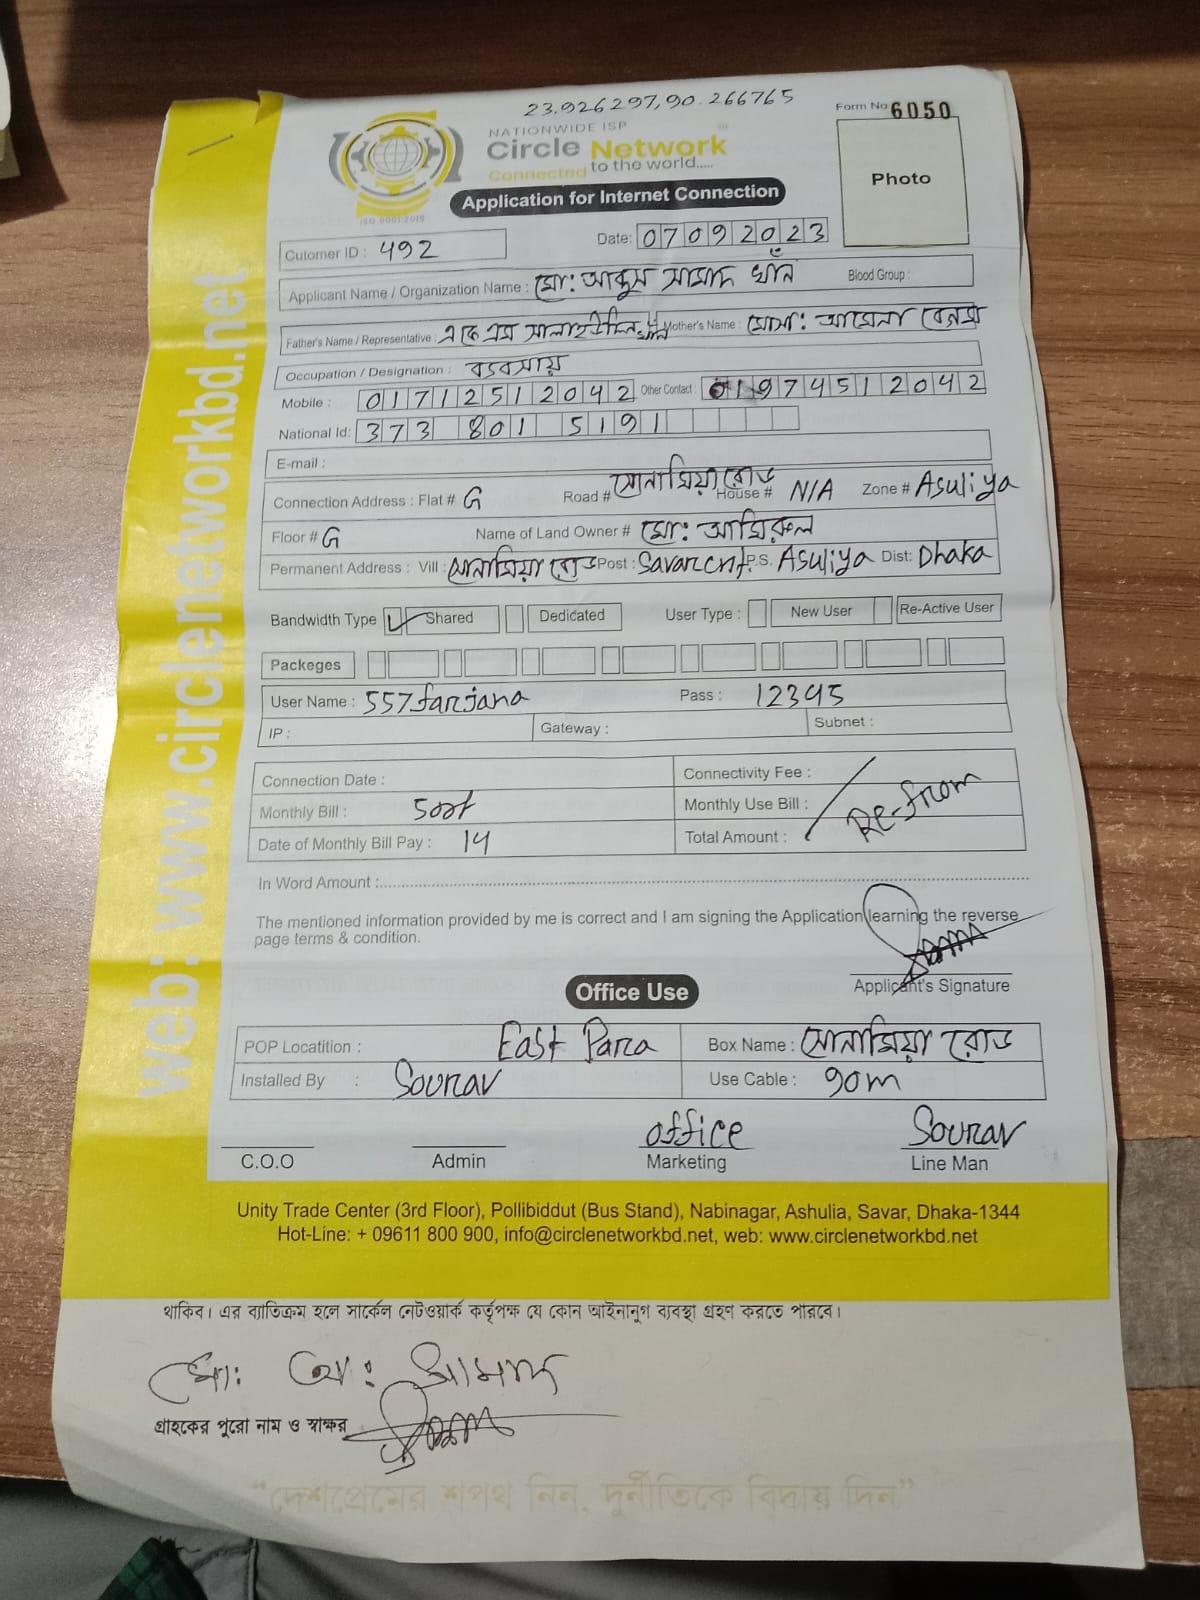 23.926297,90.266765
Form No 6050
NATIONWIDE ISP
Circle Network
Connected to the world.....
ISO 9001:2015
Photo
Application for Internet Connection
Cutomer ID : 492 Date: 07092023
Applicant Name / Organization Name : মো: আব্দুস সামাদ খাঁন Blood Group :
Father's Name / Representative : এ কে এম সালাহউদ্দিন খান Mother's Name : মোসা: আমেনা বেগম
Occupation / Designation : ব্যবসায়
Mobile : 01712512042 Other Contact : 01974512042
National Id: 373 801 5191
E-mail :
Connection Address : Flat # G Road # সোনামিয়া রোড House # N/A Zone # Asuliya
Floor # G Name of Land Owner # মো: আমিরুল
Permanent Address : Vill : সোনামিয়া রোড Post : Savarcnt. P.S. Asuliya Dist: Dhaka
Bandwidth Type Shared Dedicated User Type : New User Re-Active User
Packeges
User Name : 557farjana Pass : 12345
IP : Gateway : Subnet :
Connection Date : Connectivity Fee :
Monthly Bill : 500৳ Monthly Use Bill :
Date of Monthly Bill Pay : 14 Total Amount : Re-from
In Word Amount :
The mentioned information provided by me is correct and I am signing the Application learning the reverse
page terms & condition.
Applicant's Signature
Office Use
POP Locatition : East Para Box Name : সোনামিয়া রোড
Installed By : Sourav Use Cable : 90m
office Sourav
C.O.O Admin Marketing Line Man
Unity Trade Center (3rd Floor), Pollibiddut (Bus Stand), Nabinagar, Ashulia, Savar, Dhaka-1344
Hot-Line: + 09611 800 900, info@circlenetworkbd.net, web: www.circlenetworkbd.net
web: www.circlenetworkbd.net
থাকিব। এর ব্যতিক্রম হলে সার্কেল নেটওয়ার্ক কর্তৃপক্ষ যে কোন আইনানুগ ব্যবস্থা গ্রহণ করতে পারবে।
মো: আ: সামাদ
গ্রাহকের পুরো নাম ও স্বাক্ষর
“দেশপ্রেমের শপথ নিন, দুর্নীতিকে বিদায় দিন”